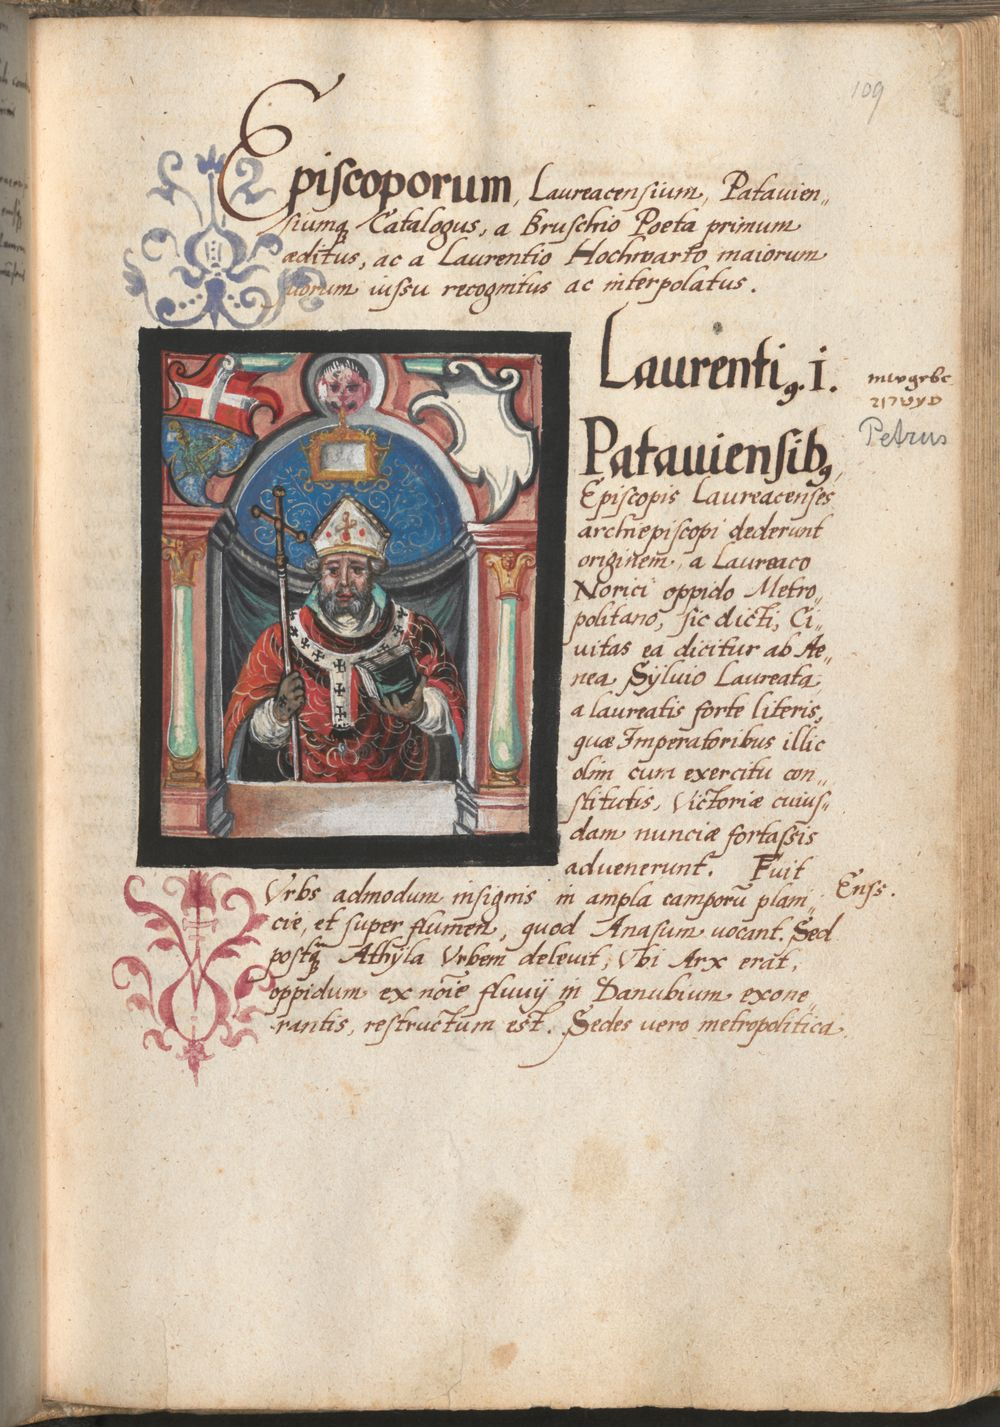 109
Episcoporum, Laureacensium, Patauien„
siumq́ꝫ Catalogus, a Bruschio Poeta primum
æditus, ac a Laurentio Hochwarto maiorum
suorum iussu recognitus ac interpolatus.
Laurentiꝰ. I.
Petrus
Patauiensibꝰ,
Episcopis Laureacenses
archiepiscopi dederunt
originem, a Laureaco
Norici oppido Metro„
politano, sic dicti, Ci„
uitas ea dicitur ab Ae„
nea Syluio Laureata,
a laureatis forte literis,
quæ Imperatoribus illic
olim cum exercitu con„
stitutis, Victoriæ cuius„
dam nunciæ fortassis
aduenerunt. Fuit
Enss.
Vrbs admodum insignis in ampla camporū plani„
cie, et super flumen, quod Anasum uocant. Sed
postq̃ꝫ Athyla Vrbem deleuit, Vbi Arx erat,
oppidum ex nōīe fluuij in Danubium exone„
rantis, restructum est. Sedes uero metropolitica